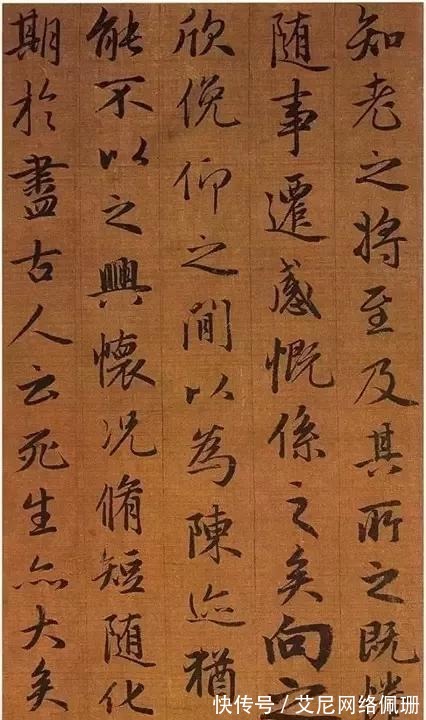 知老之将至及其所之既
随事遷感慨係之矣向之
欣俛仰之間以為陳迹猶
能不以之興懷况脩短随化
期於盡古人云死生亦大矣
快传号／艾尼网络佩珊